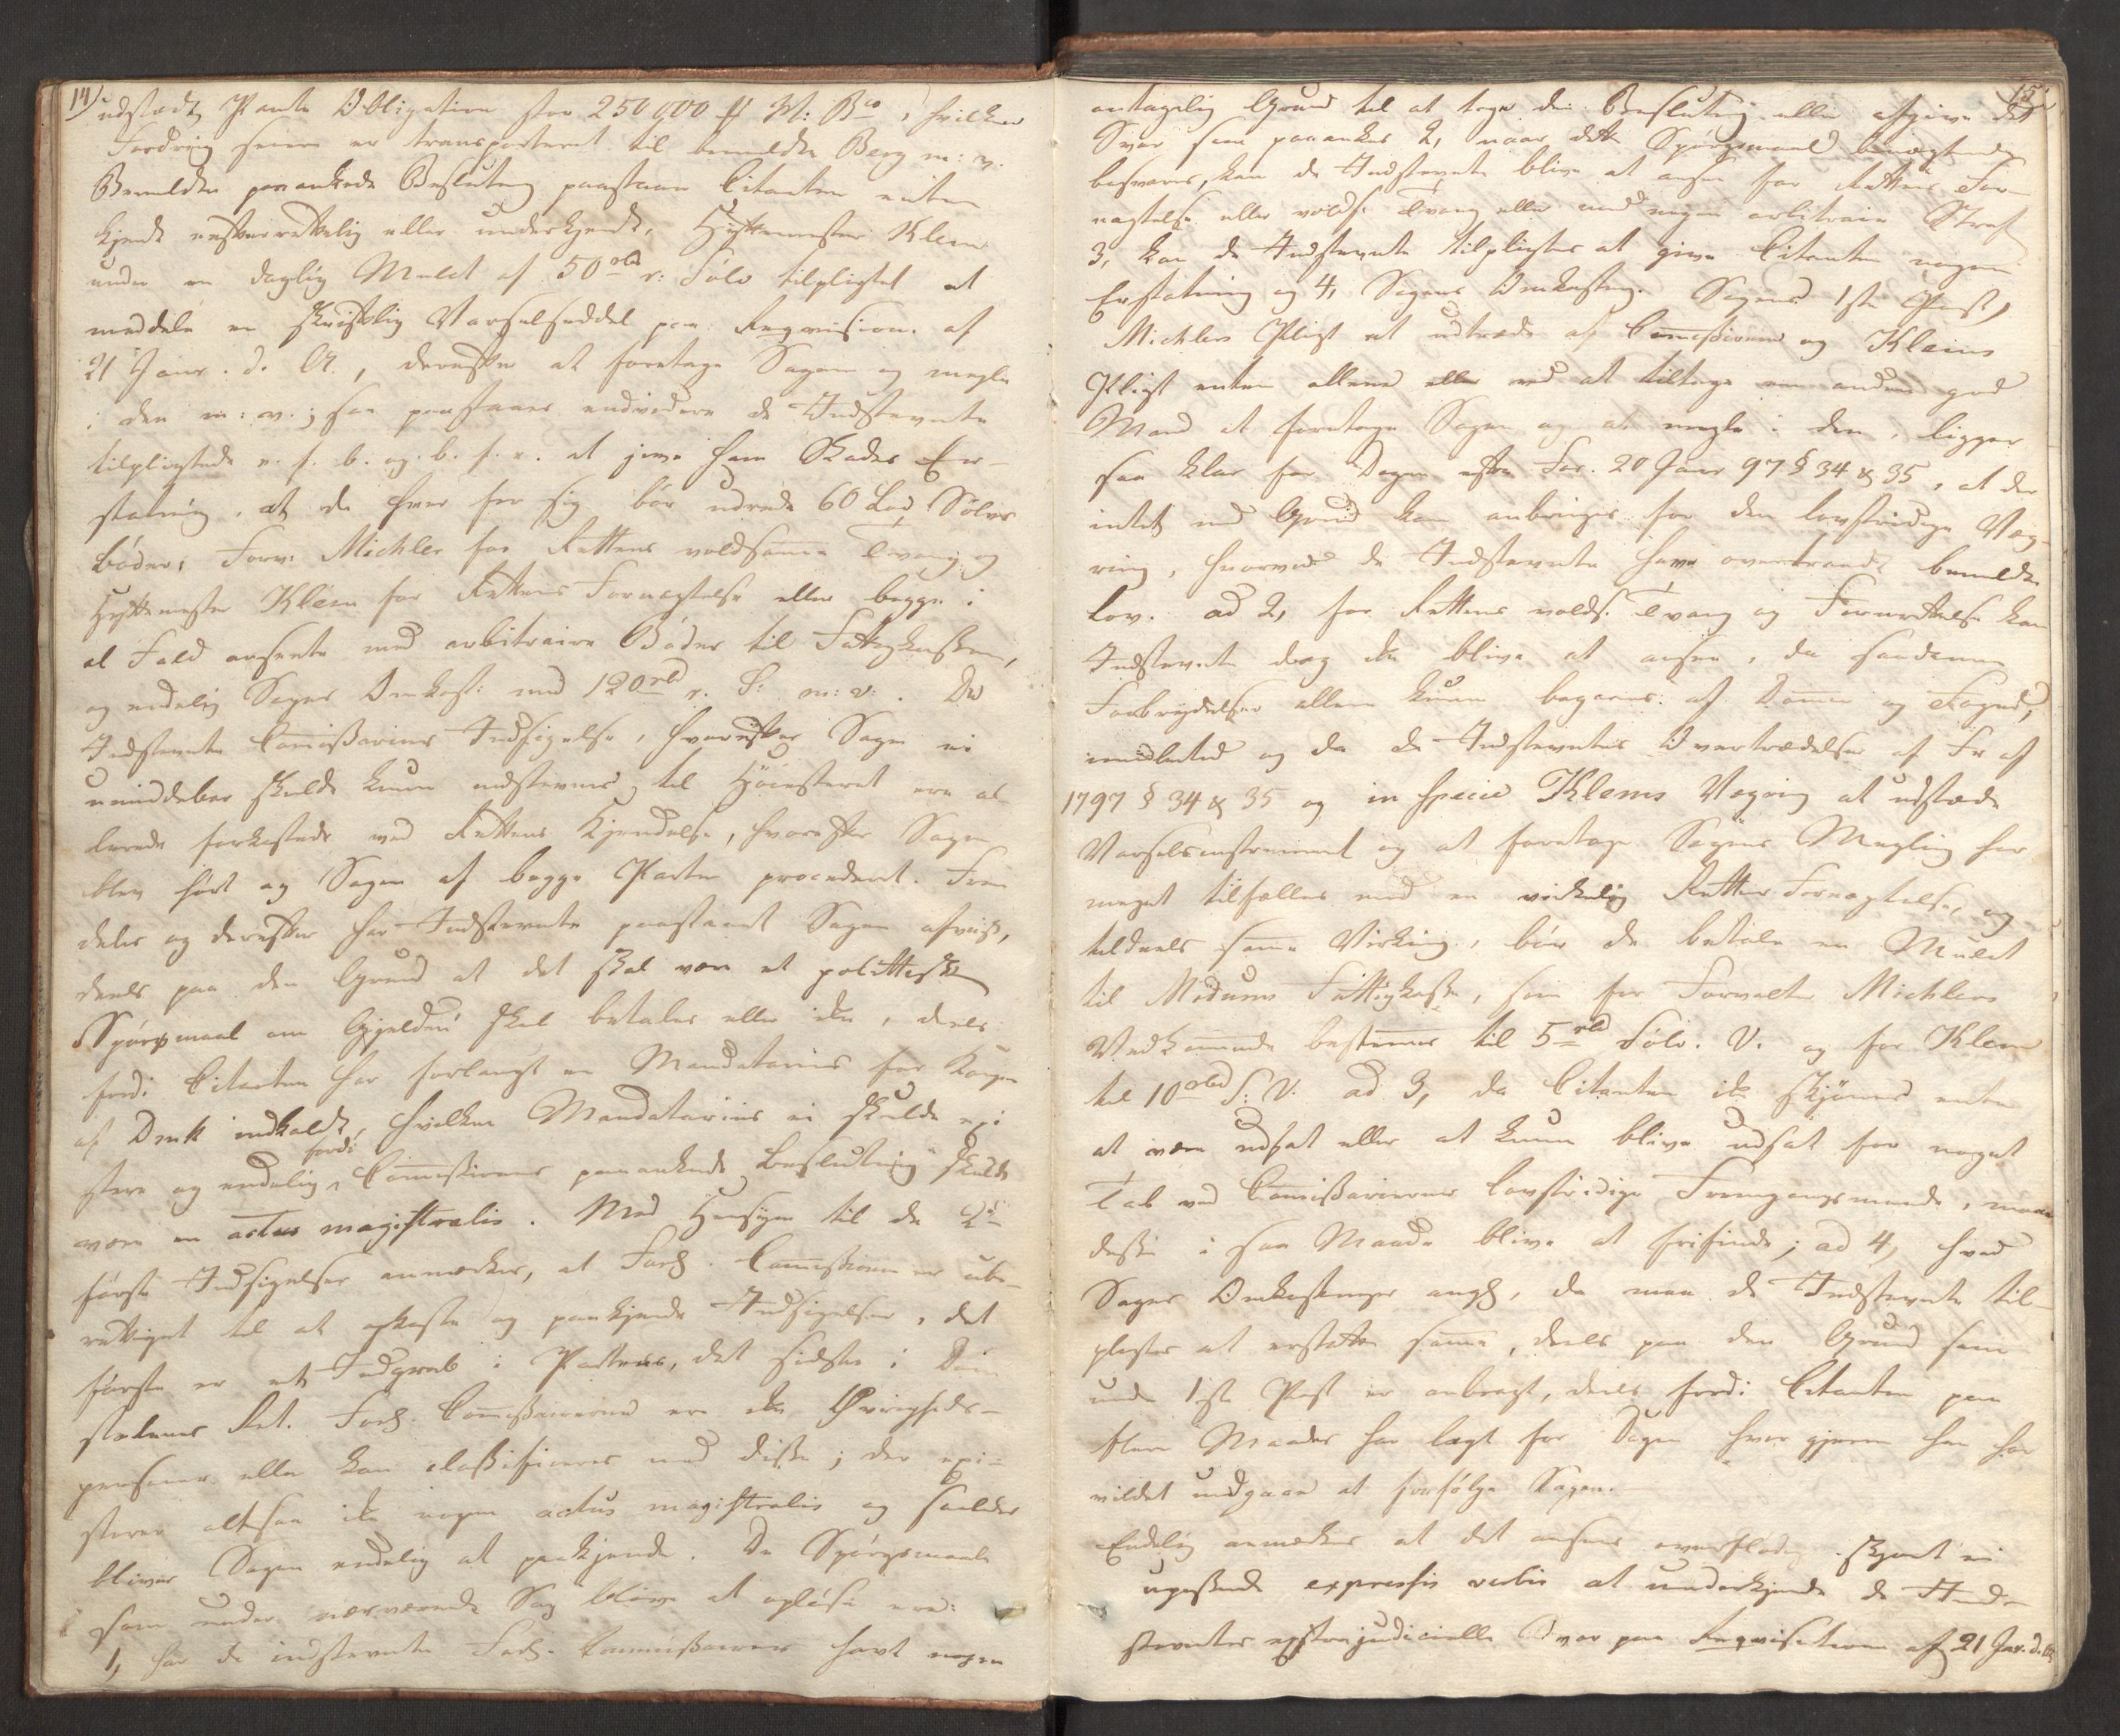 14)
udstædt Pante Obligation stor 250,000 ## M: Bco, hvilken
Fordring senere er transporteret til bemeldte Berg m: v.
Bemeldte paaankede Beslutning paastaaer Citanten enten
kjendt uefterrettelig eller underkjendt, Hyttemester Klem
under en daglig Mulct af 50 rbd r: Sølv tilpligtet at
meddele en skriftlig Varselseddel paa Reqvisition af
21 Janr. d. A., derefter at foretage Sagen og megle
i den m: v.; saa paastaaes endvidere de Indstevnte
tilpligtede e. f. b. og b. f. e. at give ham Skades Er-
statning, at de hver for sig bør udrede 60 Lod Sølvs
bøder, Forv. Michler for Rettens voldsomme Tvang og
Hyttemester Klem for Rettens Fornægtelse eller begge i
al Fald anseete med arbitraire Bøder til Fattigkassen,
og endelig Sagens Omkost: med 120 rbd r. S: m: v: . De
Indstevnte Comissariers Indsigelse, hvorefter Sagen ei
umiddelbar skulde kunne indstevnes til Høiesteret ere al-
lerede forkastede ved Rettens Kjendelse, hvorefter Sagen
blev hørt og Sagen af begge Parter procederet. Frem
deles og derefter har Indstevnte paastaaet Sagen afviist,
deels paa den Grund at det skal være et polittisk
Spørgsmaal om Gjelden skal betales eller ikke, deels
fordi Citanten har forlangt en Mandatarius for Kongen
af Dmk indkaldt, hvilken Mandatarius ei skulde exi
stere og endelig fordi Comissionens paaankede Beslutning skulde
være en actus magistralis. Med Hensyn til de 2de
første Indsigelser anmærkes, at Forl. Comissionen er ube-
rettiget til at opkaste og paakjende Indsigelser, det
første er et Indgreb i Partens, det sidste i Dom
stolenes Ret. Forl. Comissairerne ere ikke Øvrigheds-
personer eller kan classificeres med disse; der exi-
sterer altsaa ikke nogen actus magistralis og saaledes
bliver Sagen endelig at paakjende. De Spørgsmaale
som under nærværende Sag bliver at opløse ere:
1, har de indstevnte Forl. Commissairer havt nogen
15
antagelig Grund til at tage den Beslutning eller afgive det
Svar som paaankes 2, naar dette Spørgsmaal benægtende
besvares, kan de Indstevnte blive at ansee for Rettens For-
nægtelse eller volds. Tvang eller med nogen arbitrair Straf
3, kan de Indstevnte tilpligtes at give Citanten nogen
Erstatning og 4, Sagens Omkostning. Sagens 1ste Post,
Michlers Pligt at udtræde af Comissionen og Klems
Pligt enten allene eller ved at tiltage en anden god
Mand at foretage Sagen og at megle i den, ligger
saa klar for Dagen efter For. 20 Janr 97 § 34 & 35, at der
intet med Grund kan anbringes for den lovstridige Væg-
ring, hvorved de Indstevnte have overtraadt bemeldte
Lov. ad 2, for Rettens volds: Tvang og Fornægtelse kan
Indstevnte dog ikke blive at ansee, da saadanne
Forbrydelser allene kunne begaaes af Dommer og Foged,
imidlertid og da de Indstevntes Overtrædelser af Fr af
1797 § 34 & 35 og in specie Klems Vægring at udstæde
Varselsinstrument og at foretage Sagens Megling har
meget tilfælles med en virkelig Rettens Fornægtelse, og
tildeels samme Virkning, bør de betale en Mulct
til Modums Fattigkasse, som for Forvalter Michlers
Vedkommende bestemmes til 5 rbd Sølv. V. og for Klem
til 10 rbd S. V. ad 3, da Citanten ikke skjønnes enten
at være udsat eller at kunne blive udsat for noget
Tab ved Comissariernes lovstridige Fremgangsmaade, maa
disse i saa Maade blive at frifinde; ad 4, hvad
Sagens Omkostninger angl, da maa de Indstevnte til-
pligtes at erstatte samme, deels paa den Grund som
under 1ste Post er anbragt, deels fordi Citanten paa
flere Maader har lagt for Dagen hvor gjerne han har
villet undgaae at forfølge Sagen.
Endelig anmærkes at det ansees overflødig skjønt ei
upassende expressis verbis at underkjende de Ind-
stevntes extrajudicielle Svar paa Reqvisitionen af 21 Jan. d. A.